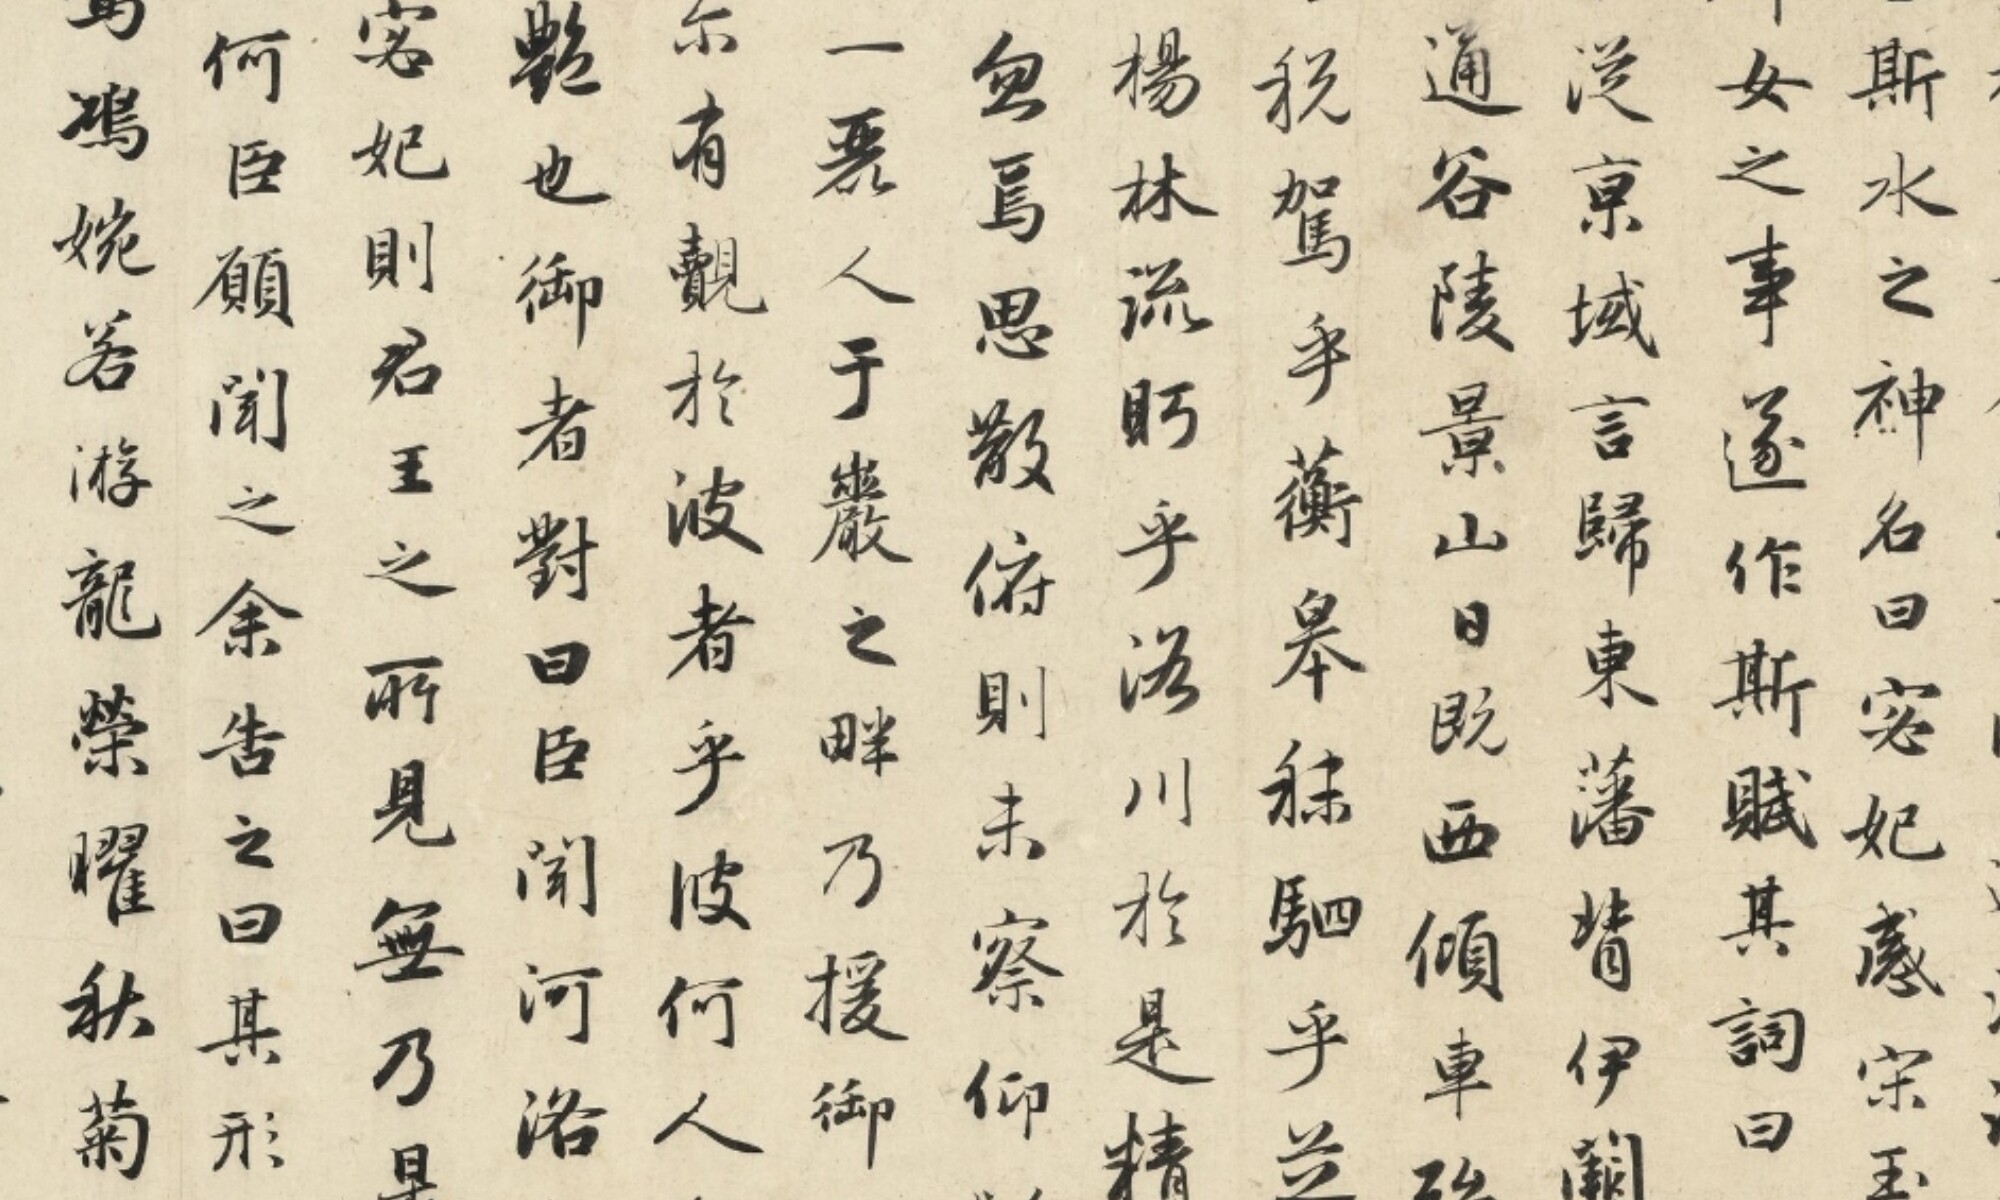 斯水之神名曰宓妃感宋玉
女之事遂作斯賦其詞曰
從京域言歸東藩背伊闕
通谷陵景山日既西傾車殆
税駕乎蘅皋秣駟乎芝
楊林流眄乎洛川於是精
忽焉思散俯則未察仰
一麗人于巖之畔乃援御
尔有覿於波者乎彼何人
艷也御者對曰臣聞河洛
宓妃則君王之所見無乃是
何臣願聞之余告之曰其形
鴻婉若游龍榮曜秋菊